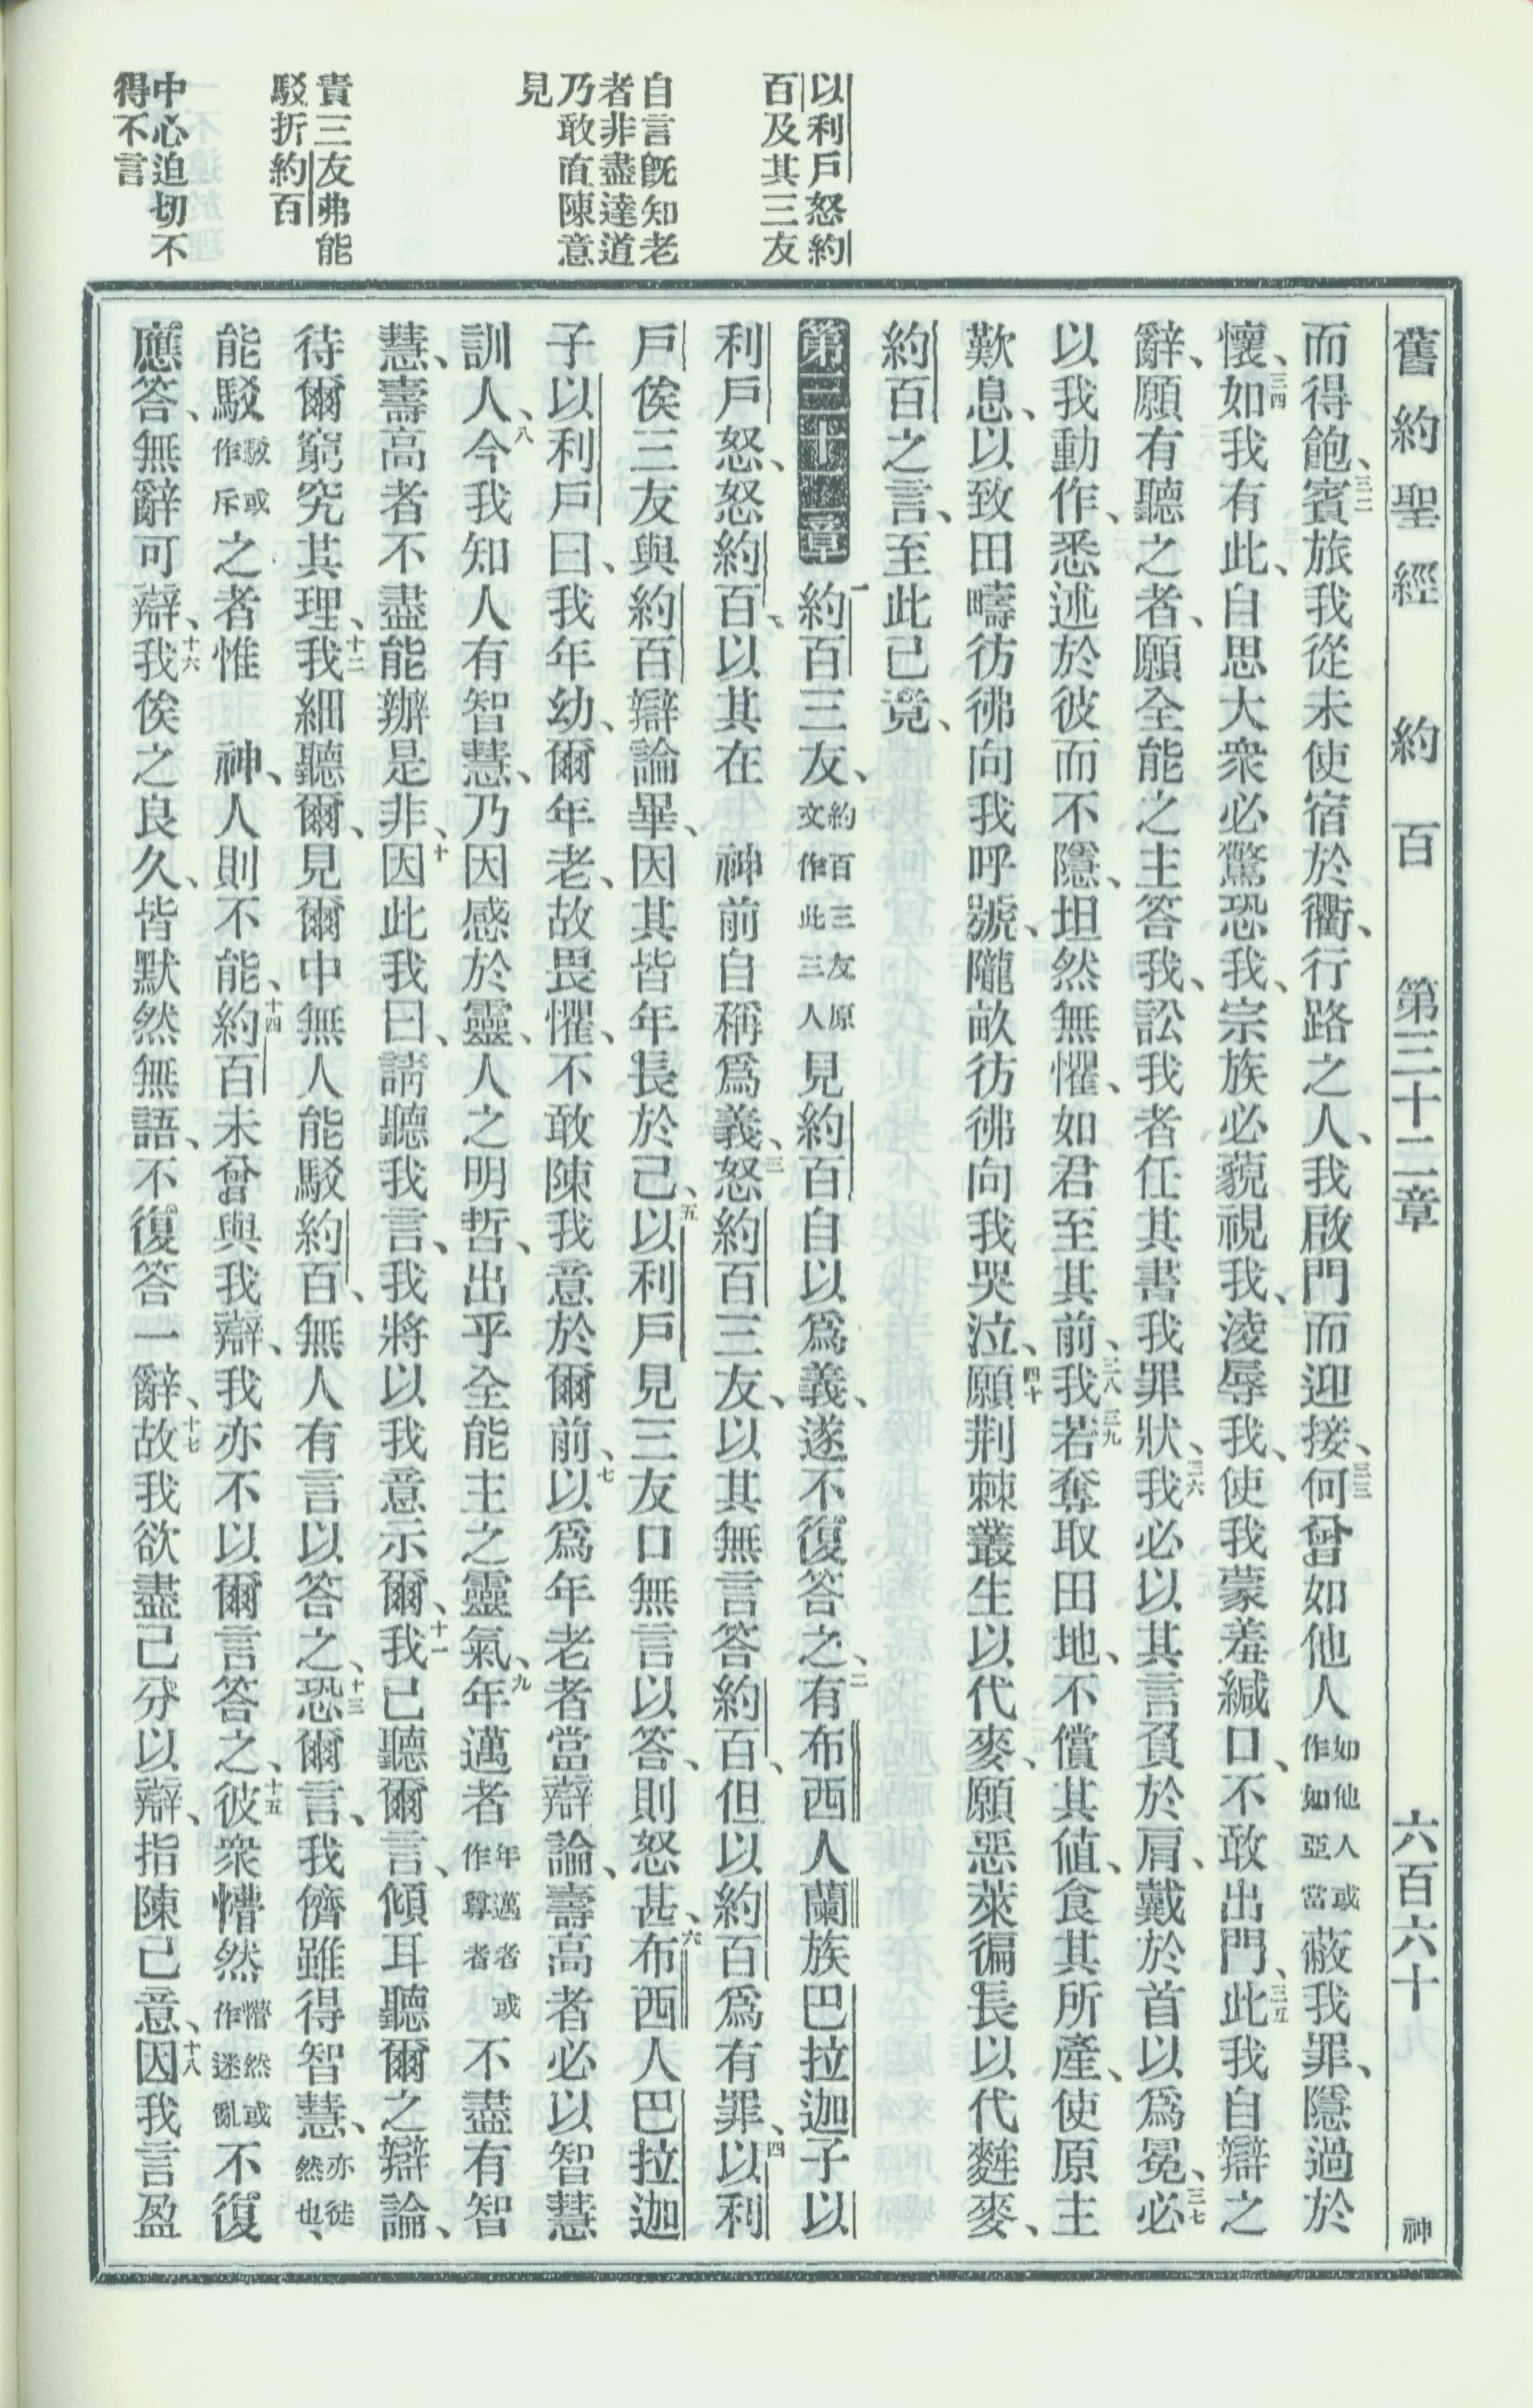 以利戶怒約
百及其三友
自言旣知老
者非盡達道
乃敢直陳意
見
責三友弗能
駁折約百
中心迫切不
得不言
舊約聖經 約百 第三十二章 六百六十 神
而得飽、三二賓旅我從未使宿於衢、行路之人、我啟門而迎接、三三何曾如他人如他人或作如亞當蔽我罪、隱過於
懷、三四如我有此、自思大衆必驚恐我、宗族必藐視我、淩辱我、使我蒙羞緘口、不敢出門、三五此我自辯之
辭、願有聽之者、願全能之主答我、訟我者任其書我罪狀、三六我必以其言負於肩、戴於首以爲冕、三七必
以我動作、悉述於彼而不隱、坦然無懼、如君至其前、三八我三九若奪取田地、不償其値、食其所產、使原主
歎息、以致田疇彷彿向我呼號、隴畝彷彿向我哭泣、四十願荆棘叢生以代麥、願惡萊徧長以代麰麥、
約百之言、至此已竟、
第三十二章 一約百三友、約百三友原文作此三人見約百自以爲義、遂不復答之、二有布西人蘭族巴拉迦子以
利戶怒、怒約百、以其在 神前自稱爲義、三怒約百三友、以其無言答約百、但以約百爲有罪、四以利
戶俟三友與約百辯論畢、因其皆年長於己、五以利戶見三友口無言以答、則怒甚、六布西人巴拉迦
子以利戶曰、我年幼、爾年老、故畏懼、不敢陳我意於爾前、七以爲年老者當辯論、壽高者必以智慧
訓人、八今我知人有智慧、乃因感於靈、人之明哲、出乎全能主之靈氣、九年邁者年邁者或作尊者不盡有智
慧、壽高者不盡能辦是非、十因此我曰、請聽我言、我將以我意示爾、十一我已聽爾言、傾耳聽爾之辯論、
待爾窮究其理、十二我細聽爾、見爾中無人能駁約百、無人有言以答之、十三恐爾言、我儕雖得智慧、亦徒然也、
能駁駁或作斥之者惟 神、人則不能、十四約百未曾與我辯、我亦不以爾言答之、十五彼衆懵然懵然或作迷亂不復
應答、無辭可辯、十六我俟之良久、皆默然無語、不復答一辭、十七故我欲盡己分以辯、指陳己意、十八因我言盈